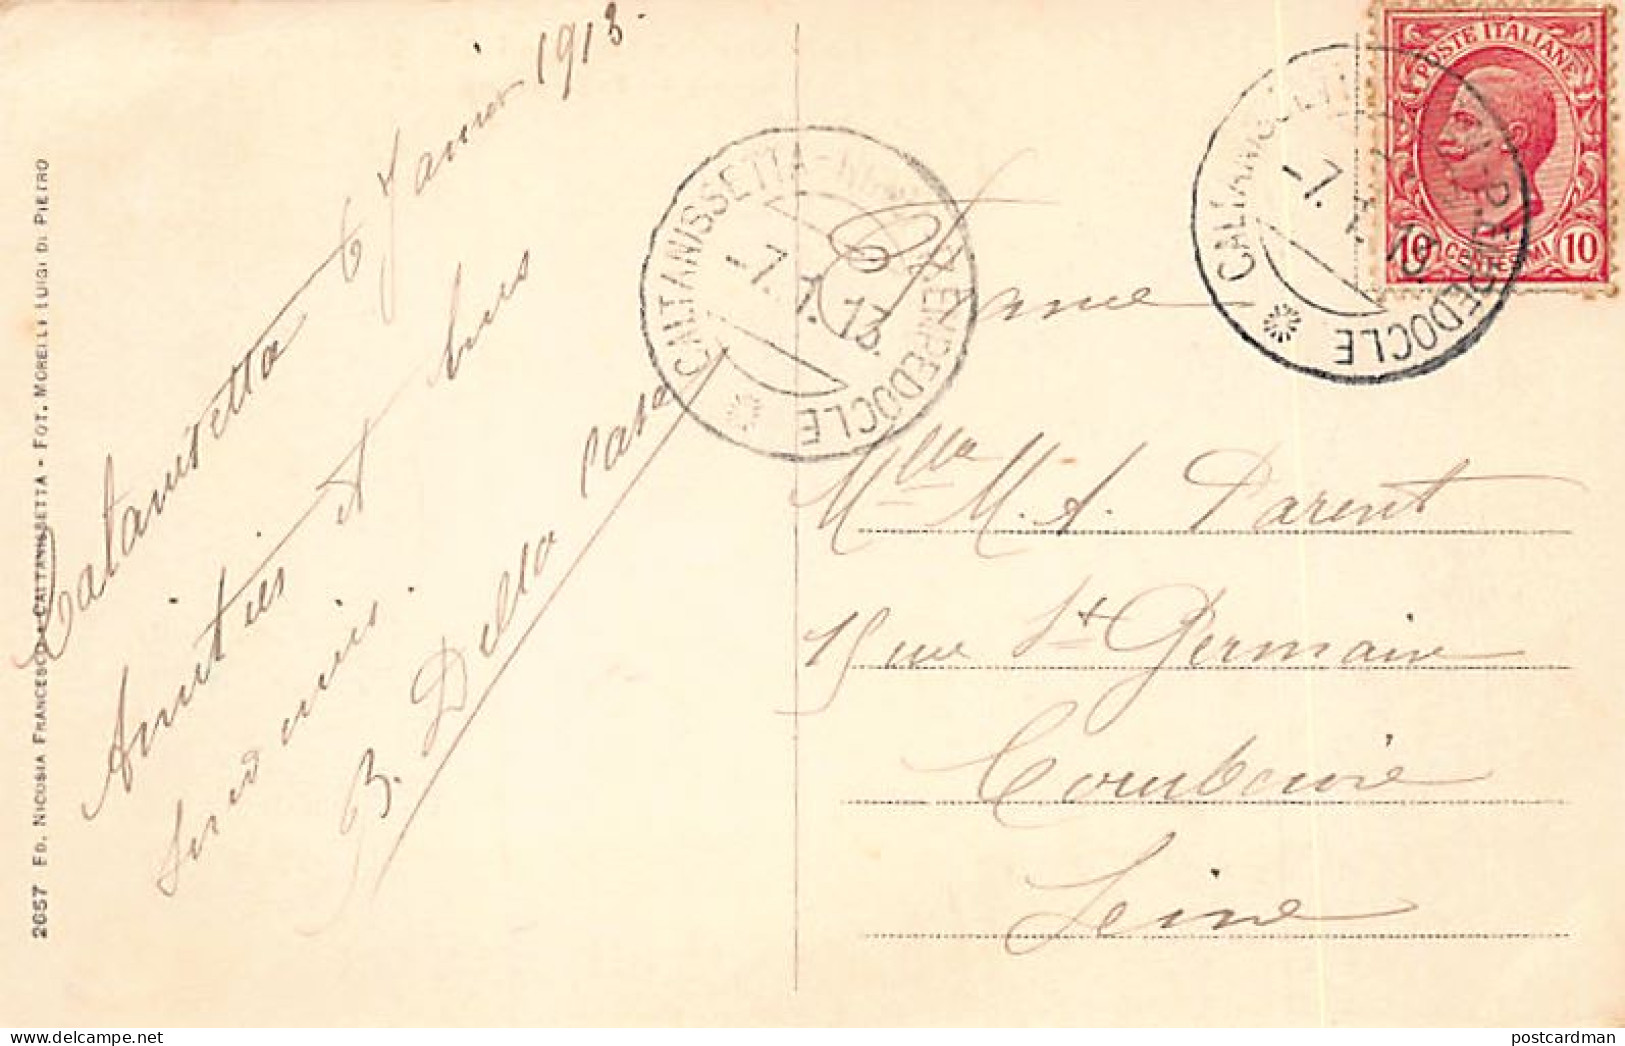 2657 ED. NICOSIA FRANCESCO - CALTANISSETTA - FOT. MORELLI LUIGI DI PIETRO
Caltanissetta 6 Janvier 1913.
Amitiés et
B. Della Casa
CALTANISSETTA - EMPEDOCLE
-7. 1. 13.
CALTANISSETTA EMPEDOCLE
-7.
POSTE ITALIANE
10 CENTESIMI 10
France
Mlle M. A. Parent
15 rue St Germain
Courbevoie
Seine
delcampe.net
postcardman